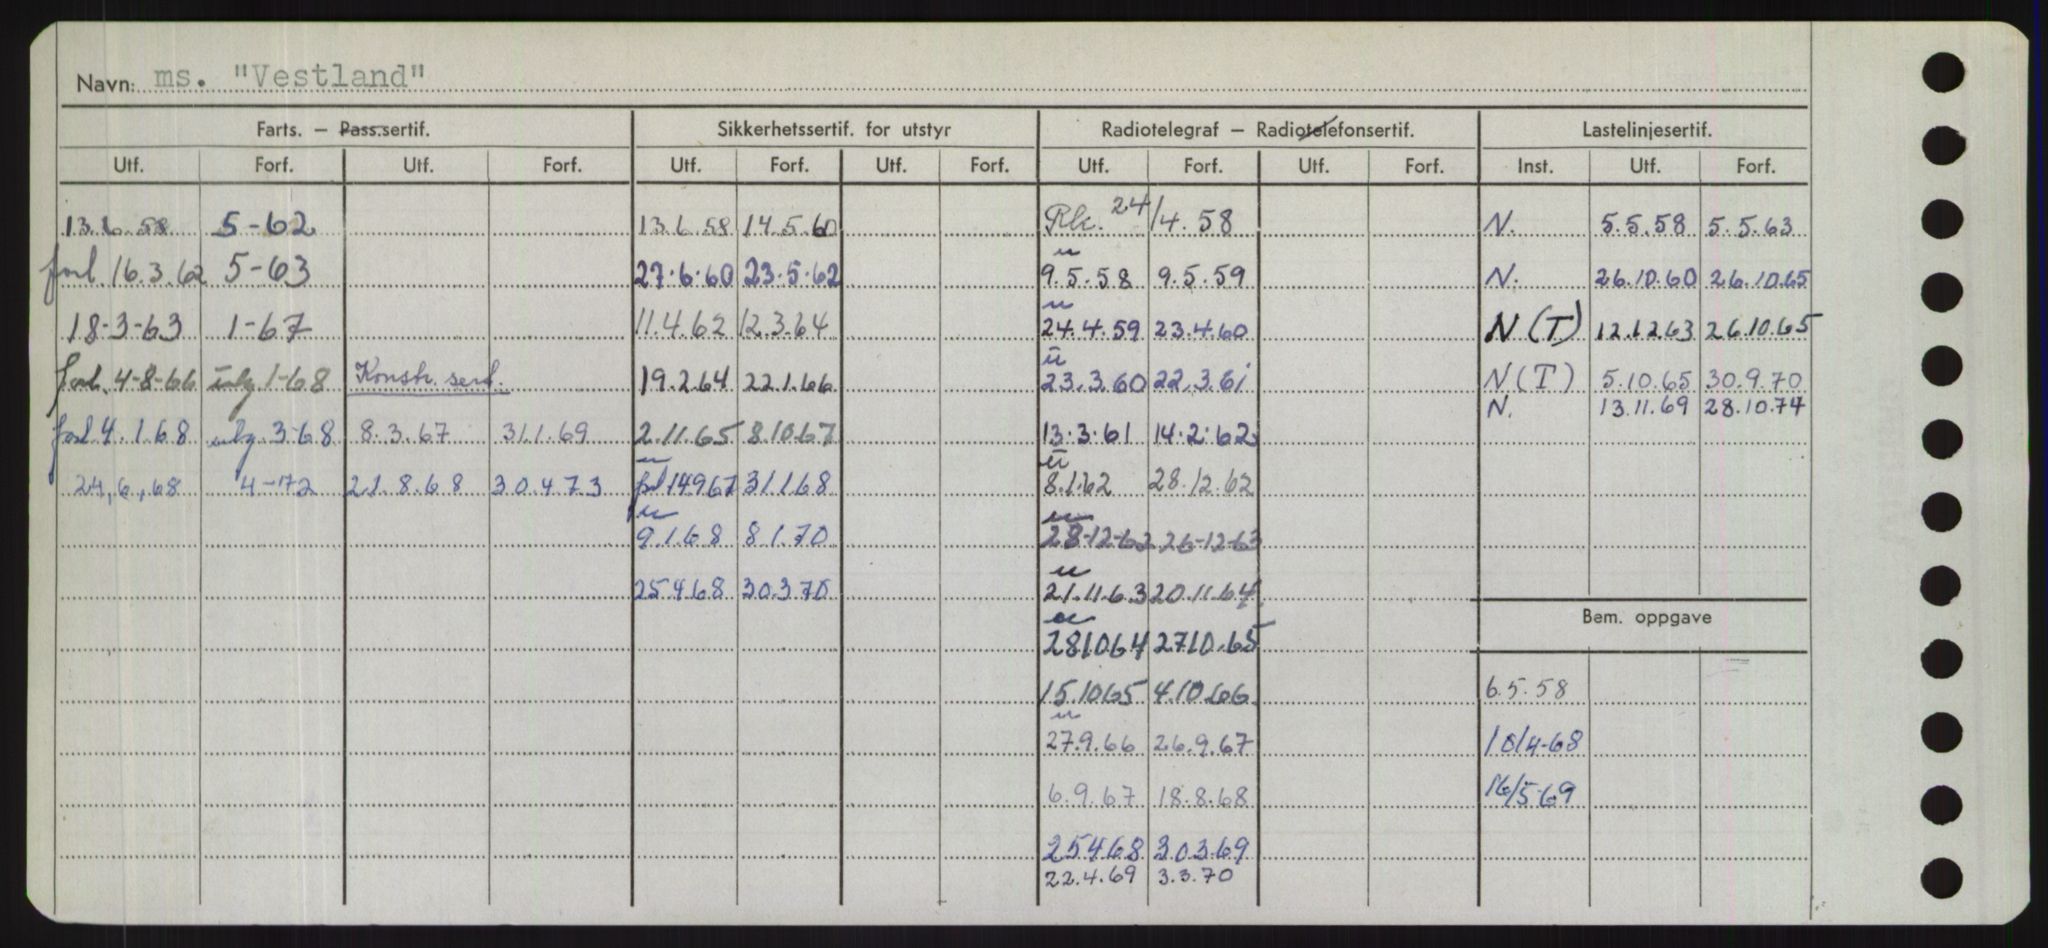 Navn: ms. "Vestland"
Farts. — Pass.sertif. Sikkerhetssertif. for utstyr Radiotelegraf — Radiotelefonsertif. Lastelinjesertif.
Utf. Forf. Utf. Forf. Utf. Forf. Utf. Forf. Utf. Forf. Utf. Forf. Inst. Utf. Forf.
13.6.58 5-62 13.6.58 14.5.60 24/4.58 N. 5.5.58 5.5.63
forl. 16.3.62 5-63 27.6.60 23.5.62 9.5.58 9.5.59 N. 26.10.60 26.10.65
18-3-63 1-67 11.4.62 12.3.64 24.4.59 23.4.60 N(T) 12.12.63 26.10.65
forl. 4-8-66 1-68 Konstr. sert. 19.2.64 22.1.66 23.3.60 22.3.61 N(T) 5.10.65 30.9.70
N. 13.11.69 28.10.74
forl 4.1.68 3-68 8.3.67 31.1.69 2.11.65 8.10.67 13.3.61 14.2.62
24,6,68 4-72 21.8.68 30.4.73 14967 31.1.68 8.1.62 28.12.62
9.1.68 8.1.70 28-12-62 26-12-63
25468 30.3.70 21.11.63 20.11.64
Bem. oppgave
281064 2710.65
15.1065 4.10.66 6.5.58
27.9.66 26.9.67 10/4-68
6.9.67 18.8.68 16/5-69
25468 30369
22.4.69 3.3.70